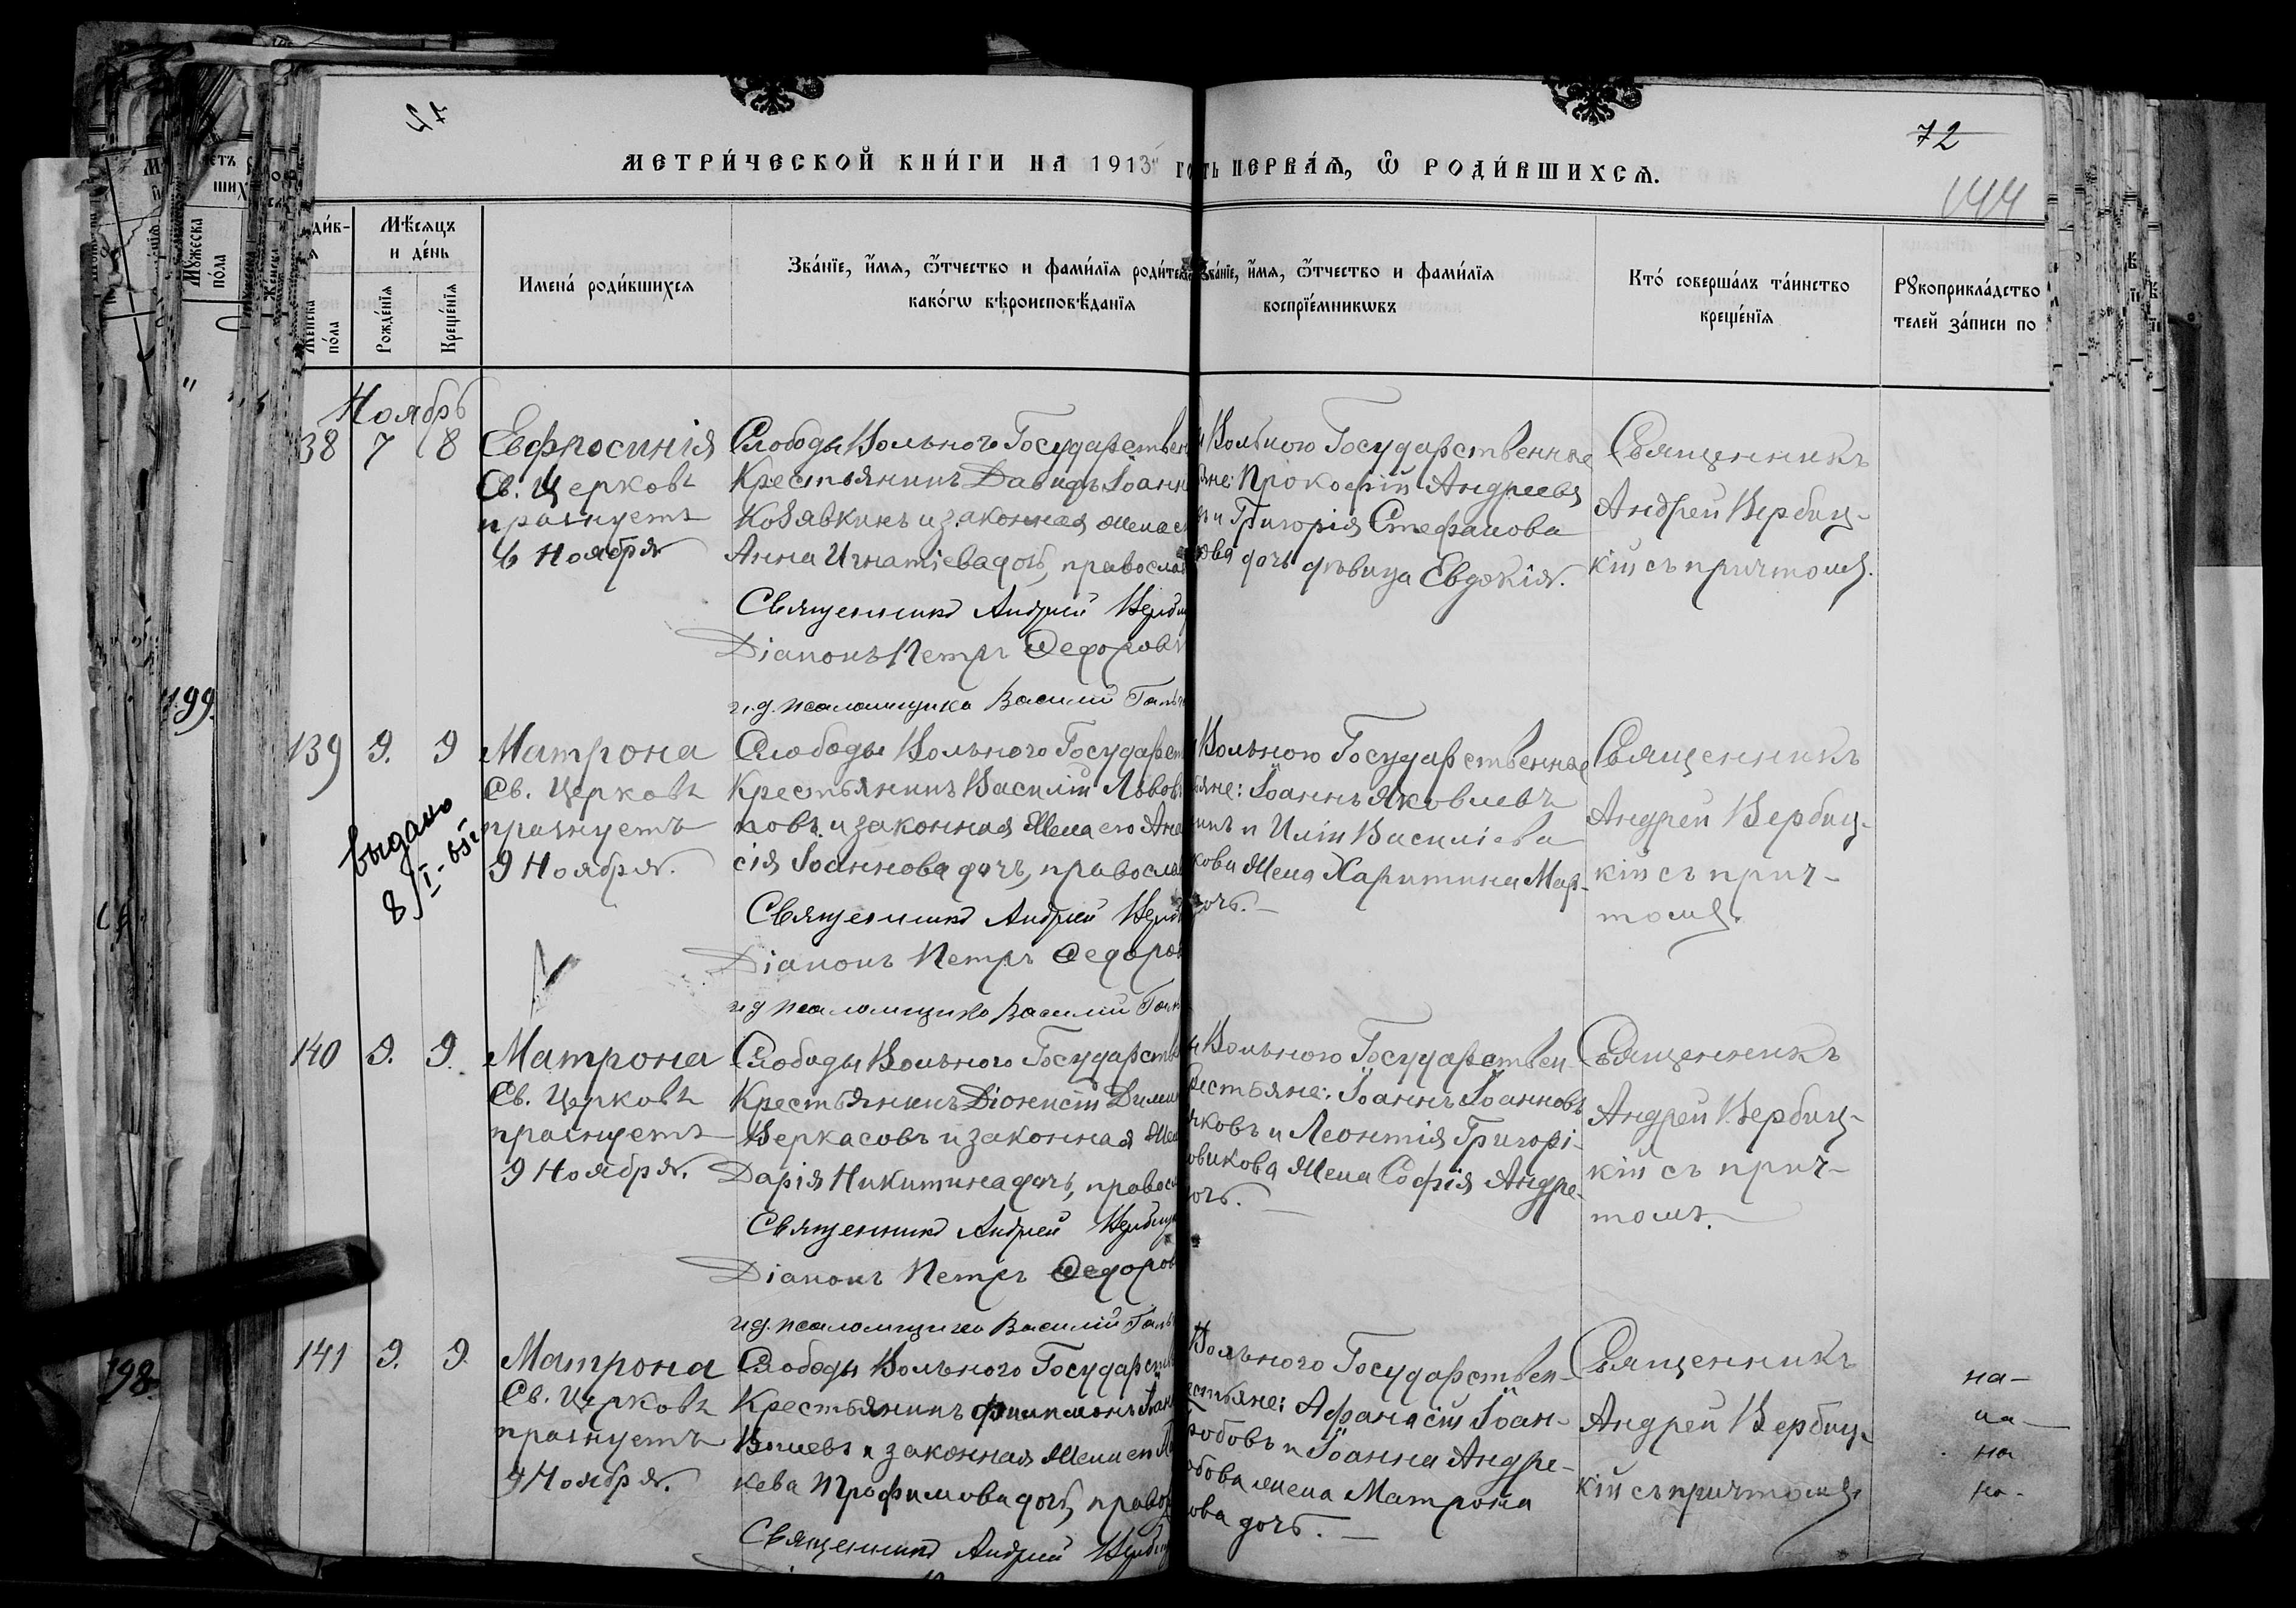 72
144
МЕТРИ́ЧЕСКОЙ КНИ́ГИ НА 1913 ГОДЪ ПЕРВА́Ѧ, Ѡ РОДИ́ВШИХСѦ.
Мѣ́сѧцъ и де́нь
Же́нска по́ла
Рожде́нїѧ
Креще́нїѧ
Имена̀ роди́вшихсѧ
Зва́нїе, и́мѧ, ѻ҆́тчество и фами́лїѧ роди́те
како́гѡ вѣроисповѣ́данїѧ
Зва́нїе, и́мѧ, ѻ҆́тчество и фами́лїѧ
воспрїе́мникѡвъ
Кто̀ соверша́лъ та́инство
креще́нїѧ
Рꙋкоприкла́дство
телей за́писи по
Ноябрь
38 7 8
Евфросинія
Св. Церковь
празнуетъ
6 Ноября
Слободы Вольного Государствен
Крестьянинъ Давидъ Іоанн
Козявкинъ и законная жена е
Анна Игнатіева дочь, правосла
Священникъ Андрей Верби
Діаконъ Петръ Ѳедоровъ
и.д. псаломщика Василій
Вольного Государственные
яне: Прокофій Андреевъ
и Григорія Стефанова
кова дочь дѣвица Евдокія.
Священникъ
Андрей Вербиц-
кій съ причтомъ.
139 9. 9
выдано
8/I-
Матрона
Св. Церковь
празнуетъ
9 Ноября.
Слободы Вольного Государст
Крестьянинъ Василій Львов
ковъ и законная жена его Ана
сія Іоаннова дочь, правосла
Священникъ Андрей Верб
Діаконъ Петръ Ѳедоров
и.д. псаломщика Василій
Вольного Государственные
яне: Іоаннъ Яковлевъ
инъ и Иліи Василіева
кова жена Харитина Мар-
дочь.
Священникъ
Андрей Вербиц-
кій съ прич-
томъ.
140 9. 9.
Матрона
Св. Церковь
празнуетъ
9 Ноября.
Слободы Вольного Государств
Крестьянинъ Діонисій Дими
Веркасовъ и законная жен
Дарія Никитина дочь, правосл
Священникъ Андрей Вербиц
Діаконъ Петръ Ѳедоров
и.д. псаломщика Василій
Вольного Государствен-
рестьяне: Іоаннъ Іоанновъ
яковъ и Леонтія Григорі-
овикова жена Софія Андре-
очь.
Священникъ
Андрей Вербиц-
кій съ прич-
томъ.
141 9. 9
Матрона
Св. Церковь
празнуетъ
9 Ноября.
Слободы Вольного Государств
Крестьянинъ Филимонъ Іоан
и законная жена его
кева Трофимова дочь, право
Священникъ Андрей Верби
Вольного Государствен-
естьяне: Афанасій Іоан-
робовъ и Іоанна Андре-
обова жена Матрона
ова дочь.
Священникъ
Андрей Вербиц-
кій съ причтомъ
на-
на
199.
198.